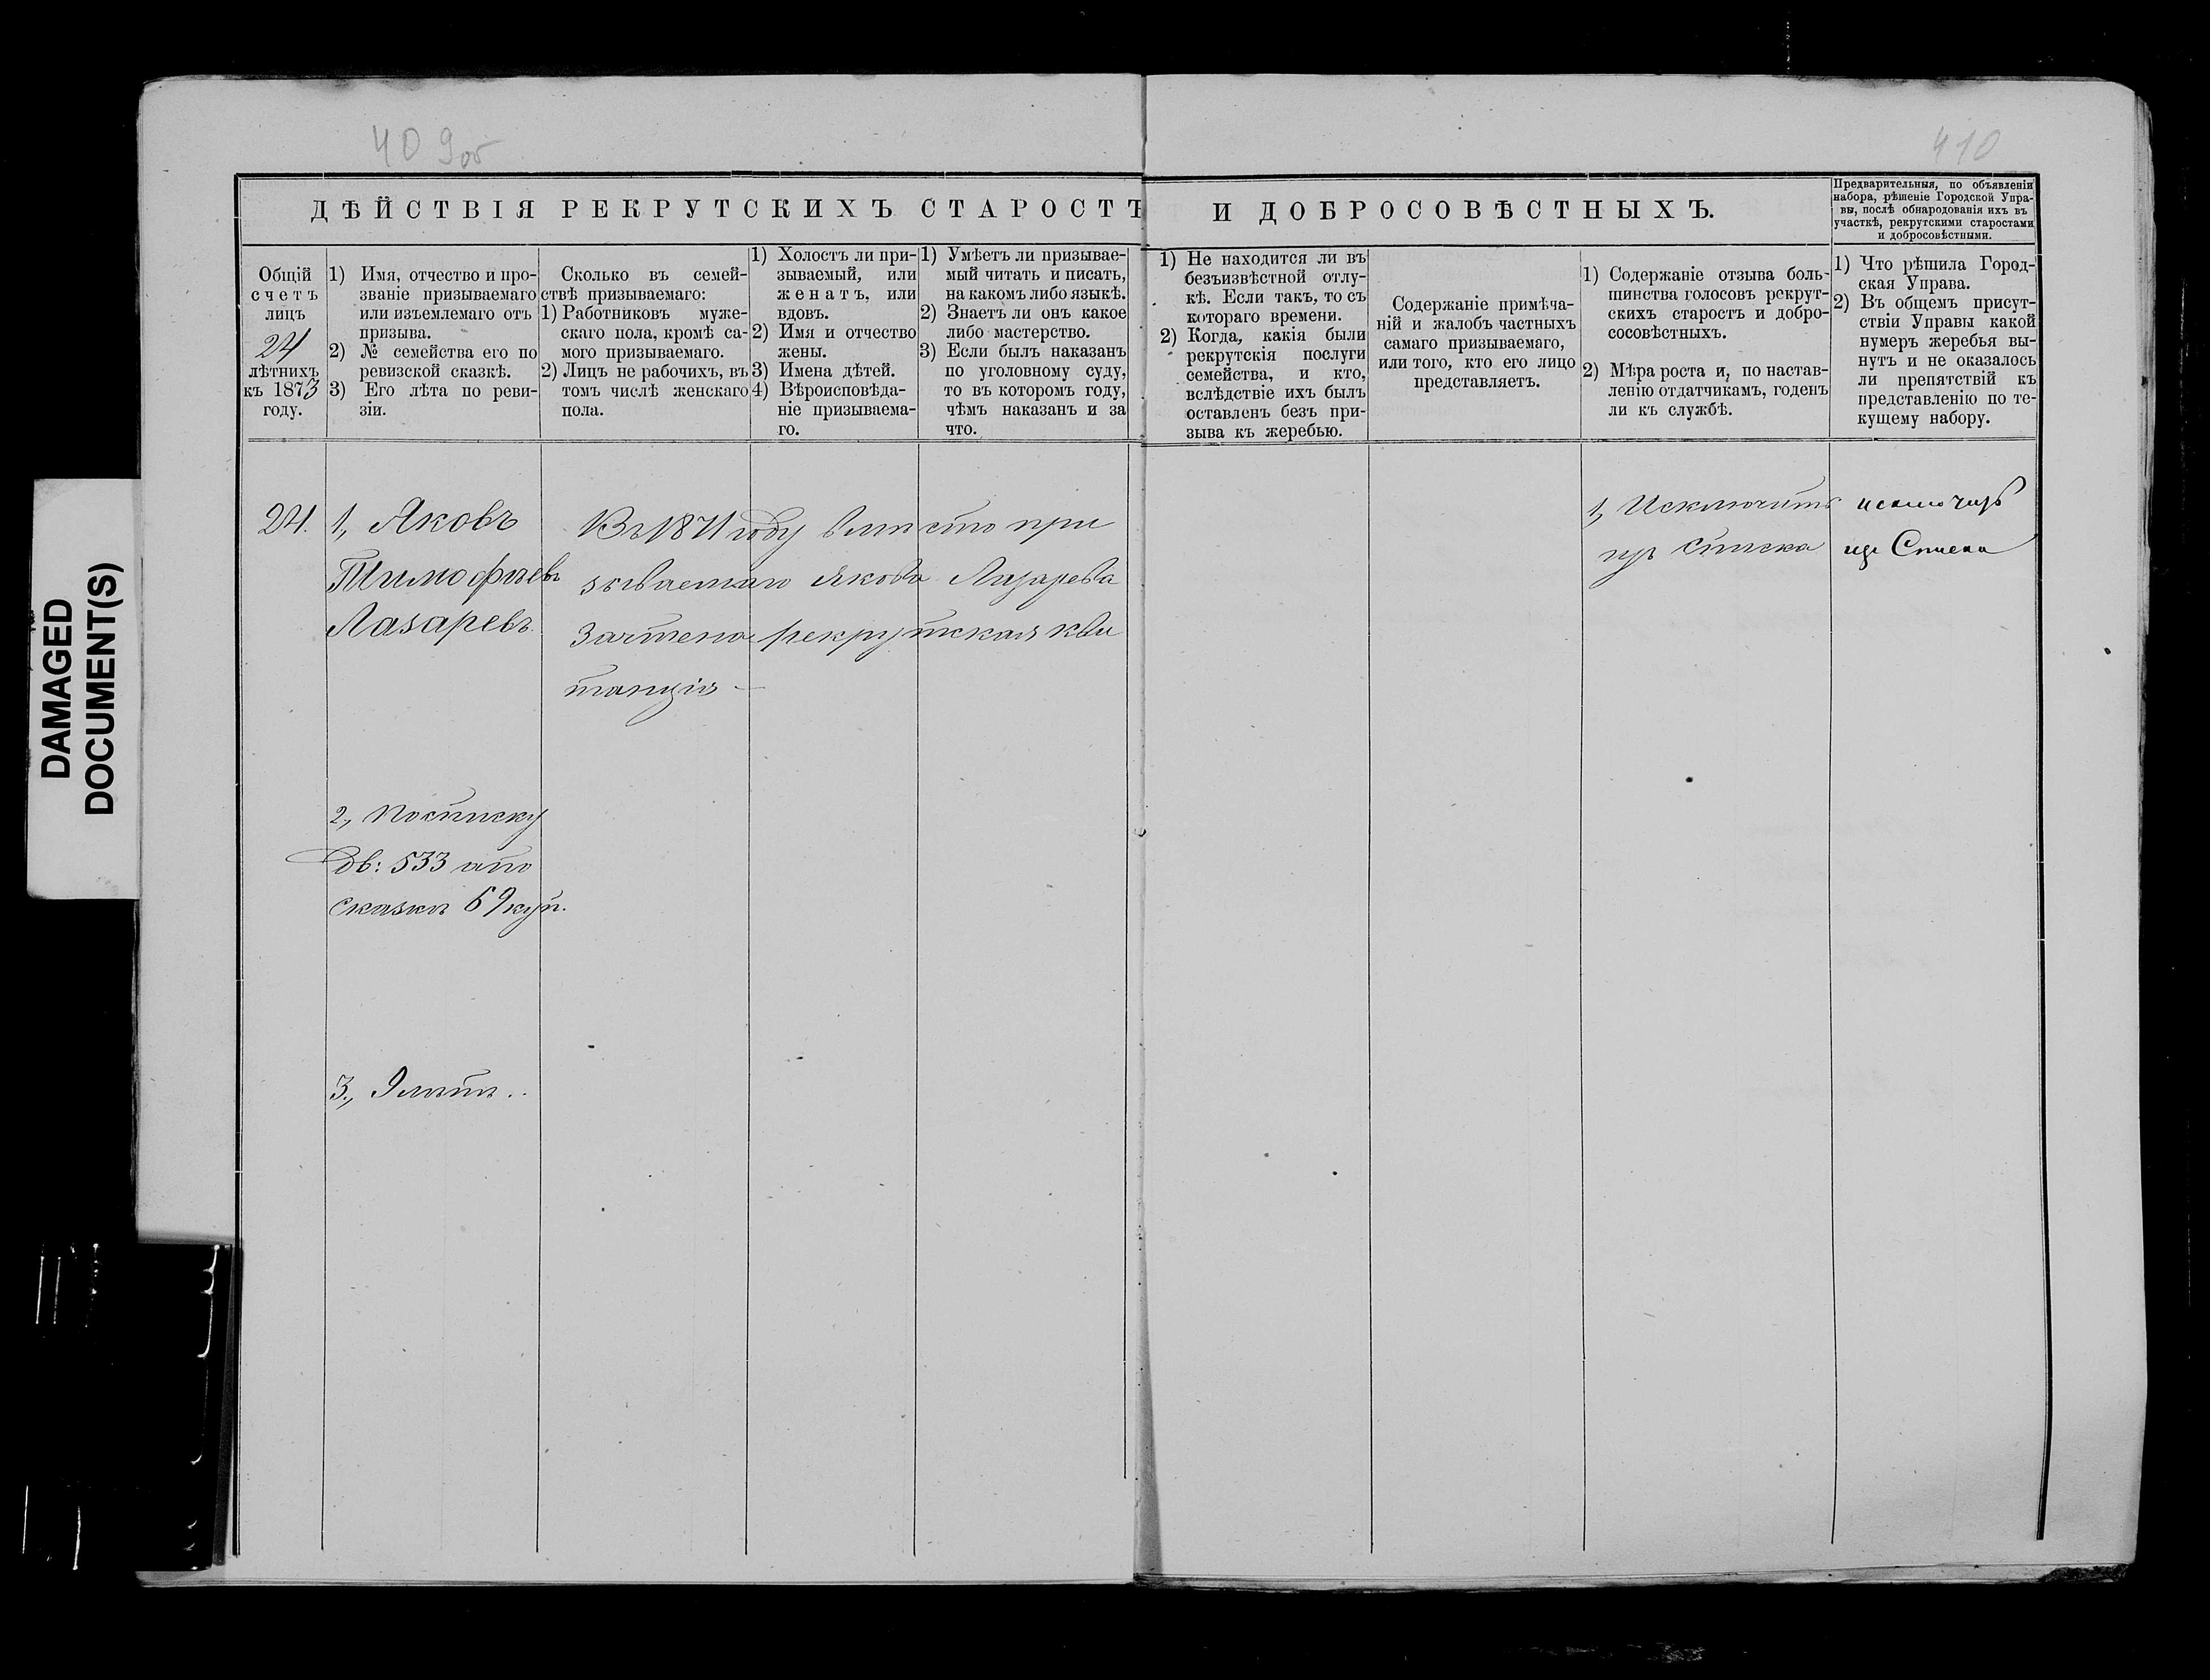 409об
410
ДѢЙСТВІЯ РЕКРУТСКИХЪ СТАРОСТЪ И ДОБРОСОВѢСТНЫХЪ.
Предварительныя, по объявленіи
набора, рѣшеніе Городской Упра-
вы, послѣ обнародованія ихъ въ
участкѣ, рекрутскими старостами
и добросовѣстными.
Общій
счетъ
лицъ
24
лѣтнихъ
къ 1873
году.
1) Имя, отчество и про-
званіе призываемаго
или изъемлемаго отъ
призыва.
2) № семейства его по
ревизской сказкѣ.
3) Его лѣта по реви-
зіи.
Сколько въ семей-
ствѣ призываемаго:
1) Работниковъ муже-
скаго пола, кромѣ са-
мого призываемаго.
2) Лицъ не рабочихъ, въ
томъ числѣ женскаго
пола.
1) Холостъ ли при-
зываемый, или
женатъ, или
вдовъ.
2) Имя и отчество
жены.
3) Имена дѣтей.
4) Вѣроисповѣда-
ніе призываема-
го.
1) Умѣетъ ли призывае-
мый читать и писать,
на какомъ либо языкѣ.
2) Знаетъ ли онъ какое
либо мастерство.
3) Если былъ наказанъ
по уголовному суду,
то въ которомъ году,
чѣмъ наказанъ и за
что.
1) Не находится ли въ
безъизвѣстной отлу-
кѣ. Если такъ, то съ
котораго времени.
2) Когда, какія были
рекрутскія послуги
семейства, и кто,
вслѣдствіе ихъ былъ
оставленъ безъ при-
зыва къ жеребью.
Содержаніе примѣча-
ній и жалобъ частныхъ
самаго призываемаго,
или того, кто его лицо
представляетъ.
1) Содержаніе отзыва боль-
шинства голосовъ рекрут-
скихъ старостъ и добро-
сосовѣстныхъ.
2) Мѣра роста и, по настав-
ленію отдатчикамъ, годенъ
ли къ службѣ.
1) Что рѣшила Город-
ская Управа.
2) Въ общемъ присут-
ствіи Управы какой
нумеръ жеребья вы-
нутъ и не оказалось
ли препятствій къ
представленію по те-
кущему набору.
24.
1, Яковъ
Тимофѣевъ
Лазаревъ
2, По списку
дв: 533 а по
сказкѣ 69 куп.
3, 9 лѣтъ..
Въ 1871 году вмѣсто при
зываемаго Якова Лазарева
Зачтена рекрутская кви
танція —
1, Исключить
изъ списка
изъ Списка
DAMAGED
DOCUMENT(S)